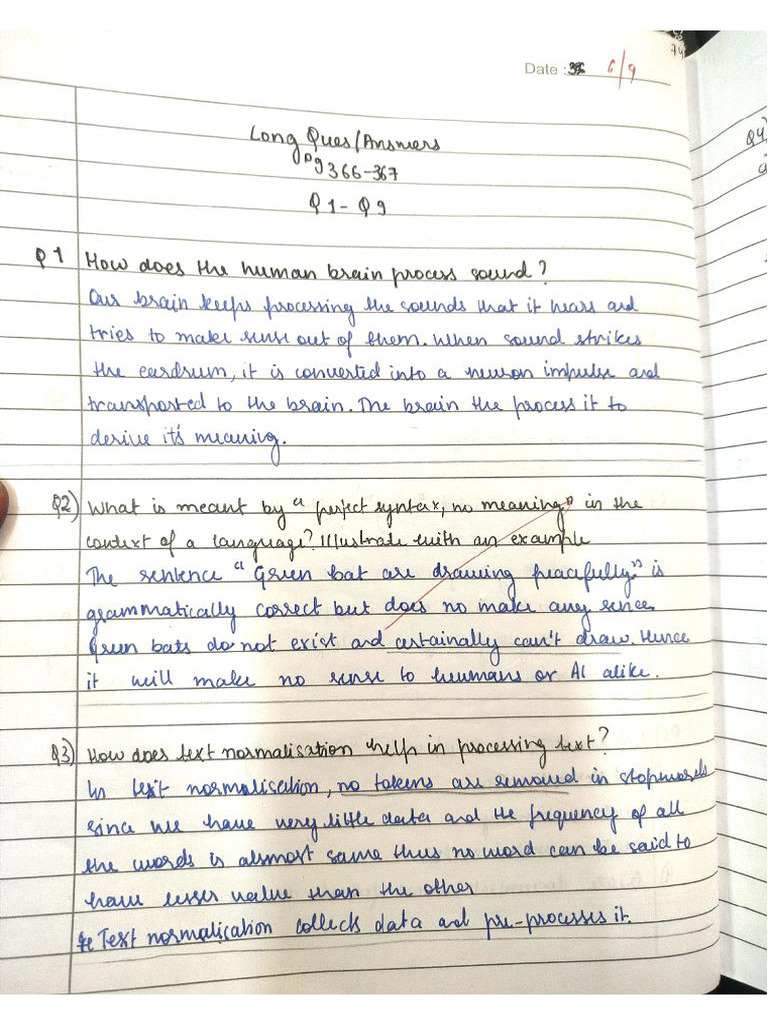 Date : 6/9
Long Ques/Answers
Pg 366-367
Q1-Q9
Q1 How does the human brain process sound?
Our brain keeps processing the sounds that it hears and
tries to make sense out of them. When sound strikes
the eardrum, it is converted into a neuron impulse and
transported to the brain. The brain the process it to
derive it's meaning.
Q2) What is meant by "perfect syntax, no meaning" in the
context of a language? Illustrate with an example
The sentence "Green bat are drawing peacefully" is
grammatically correct but does no make any sence.
Green bats do not exist and certainally can't draw. Hence
it will make no sense to humans or AI alike.
Q3) How does text normalisation help in processing text?
In text normalisation, no tokens are removed in stopwords
since we have very little data and the frequency of all
the words is almost same thus no word can be said to
have lesser value than the other
Text normalisation collects data and pre-processes it.
Q4)